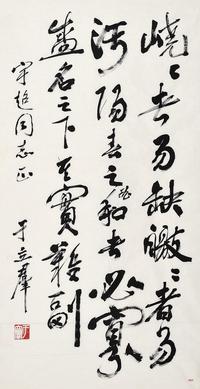 峣峣者易缺皦皦者易
污阳春之和者必寡
盛名之下其实难副
宋趋同志正
于立群